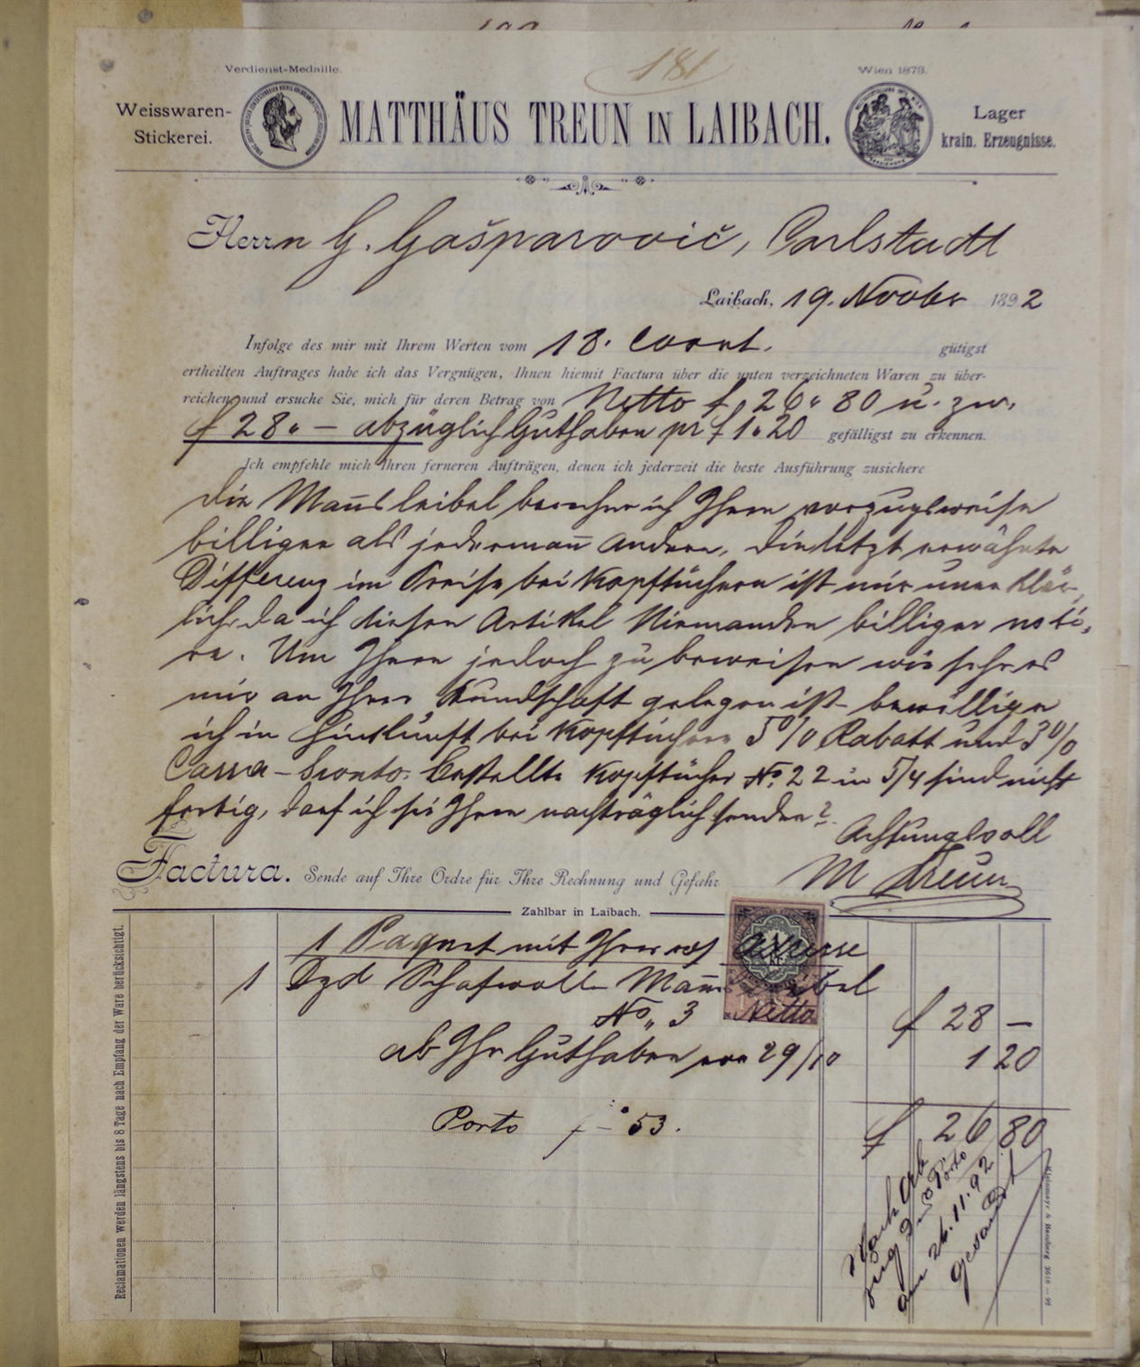 181
Verdienst-Medaille.
Wien 1873.
Weisswaren-
Stickerei.
MATTHÄUS TREUN IN LAIBACH.
Lager
krain. Erzeugnisse.
Herrn G. Gašparović, Carlstadt
Laibach, 19. Novbr 1892
Infolge des mir mit Ihrem Werten vom 18. Corrt. gütigst
ertheilten Auftrages habe ich das Vergnügen, Ihnen hiemit Factura über die unten verzeichneten Waren zu über-
reichen und ersuche Sie, mich für deren Betrag von Netto f. 26.80 u. zw.
f 28.– abzüglich Guthaben pr f 1.20 gefälligst zu erkennen.
Ich empfehle mich Ihren ferneren Aufträgen, denen ich jederzeit die beste Ausführung zusichere
Die Mañsleibel berechne ich Ihnen vorzugsweise
billiger als jedermañ andern. Die letzt erwähnte
Differenz im Preise bei Kopftüchern ist mir uner klär-
lich, da ich diesen Artikel Niemanden billiger noti-
re. Um Ihnen jedoch zu beweisen wie sehr es
mir an Ihrer Kundschaft gelegen ist bewillige
ich in Hinkunft bei Kopftüchern 5% Rabatt und 3%
Cassa-Sconto. Bestellte Kopftücher No. 22 in 5/4 sind nicht
fertig, darf ich sie Ihnen nachträglich senden?
Achtungsvoll
M Treun
Factura. Sende auf Ihre Ordre für Ihre Rechnung und Gefahr
Zahlbar in Laibach.
1 Paquet mit Ihrer Adresse
1 Dzd Schafwoll Mañsleibel
No. 3 Netto f 28 –
ab Ihr Guthaben von 29/10 1 20
Porto f –.53.
f 26 80
Nach Ab
zug Porto
am 26.11.92
gesandt
Reclamationen werden längstens bis 8 Tage nach Empfang der Ware berücksichtigt.
Kleinmayr & Bamberg